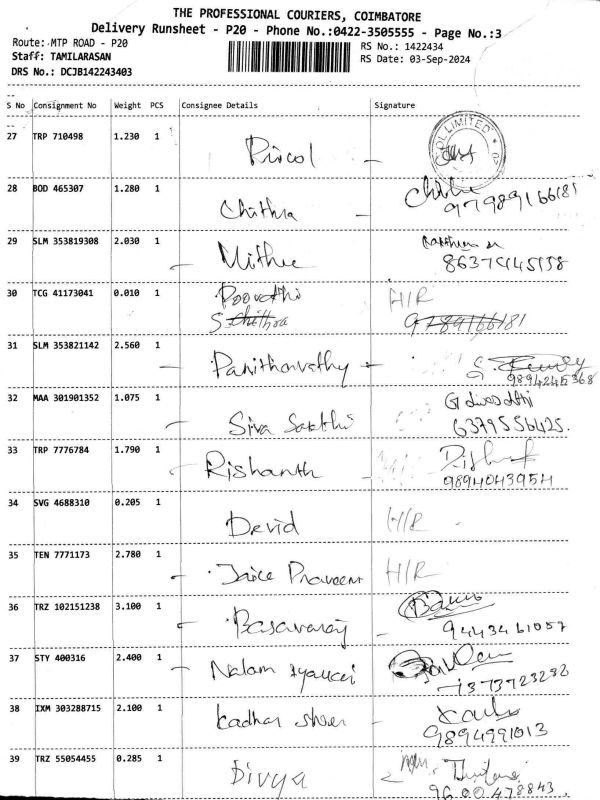 THE PROFESSIONAL COURIERS, COIMBATORE
Delivery Runsheet - P20 - Phone No.:0422-3505555 - Page No.:3
Route: MTP ROAD - P20
RS No.: 1422434
Staff: TAMILARASAN
RS Date: 03-Sep-2024
DRS No.: DCJB142243403
S No Consignment No Weight PCS Consignee Details Signature
27 TRP 710498 1.230 1
LIMITED
28 BOD 465307 1.280 1 Chithra
9798916 6181
29 SLM 353819308 2.030 1
30 TCG 41173041 0.010 1 Poovathi H/R
S. Chithra 9789166181
31 SLM 353821142 2.560 1
9894245368
32 MAA 301901352 1.075 1 Siva Sakthi
6379556425.
33 TRP 7776784 1.790 1 Rishanth
9894043954
34 SVG 4688310 0.205 1 David H/R
35 TEN 7771173 2.780 1 Praveen H/R
36 TRZ 102151238 3.100 1 Basavaraj
9443461057
37 STY 400316 2.400 1 Nalam
38 IXM 303288715 2.100 1 Kadhar
9894991013
39 TRZ 55054455 0.285 1 Divya
9600478843.